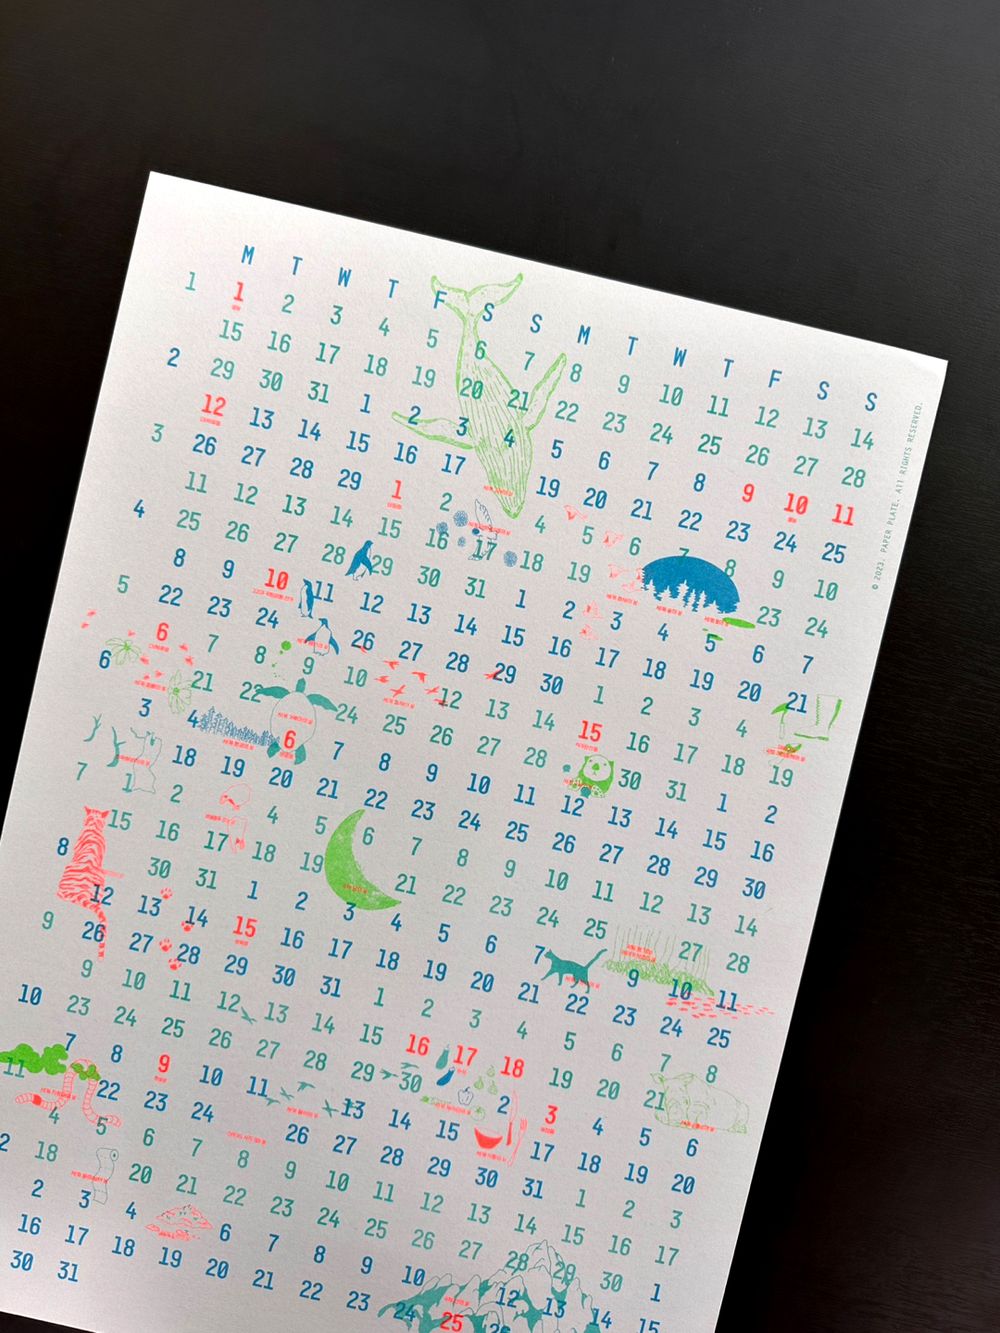 M T W T F S S M T W T F S S
1 1 2 3 4 5 6 7 8 9 10 11 12 13 14
15 16 17 18 19 20 21 22 23 24 25 26 27 28
2 29 30 31 1 2 3 4 5 6 7 8 9 10 11
12 13 14 15 16 17 19 20 21 22 23 24 25
3 26 27 28 29 1 2 4 5 6 7 8 9 10
11 12 13 14 15 16 17 18 19 23 24
4 25 26 27 28 29 30 31 1 2 3 4 5 6 7
8 9 10 11 12 13 14 15 16 17 18 19 20 21
5 22 23 24 26 27 28 29 30 1 2 3 4
6 7 8 9 10 12 13 14 15 16 17 18 19
6 21 22 24 25 26 27 28 30 31 1 2
3 4 6 7 8 9 10 11 12 13 14 15 16
18 19 20 21 22 23 24 25 26 27 28 29 30
7 1 2 4 5 6 7 8 9 10 11 12 13 14
15 16 17 18 19 21 22 23 24 25 27 28
8 30 31 1 2 3 4 5 6 7 9 10 11
12 13 14 15 16 17 18 19 20 21 22 23 24 25
9 26 27 28 29 30 31 1 2 3 4 5 6 7 8
9 10 11 12 13 14 15 16 17 18 19 20 21
10 23 24 25 26 27 28 29 30 2 3 4 5 6
7 8 9 10 11 13 14 15 17 18 19 20
11 22 23 24 26 27 28 29 30 31 1 2 3
4 5 6 7 8 9 10 11 12 13 14 15 16 17
2 18 20 21 22 23 24 25 26 27 28 29 30 1
2 3 4 6 7 8 9 10 12 13 14 15
16 17 18 19 20 21 22 23 24 25 26
30 31
© 2023. PAPER PLATE. All RIGHTS RESERVED.